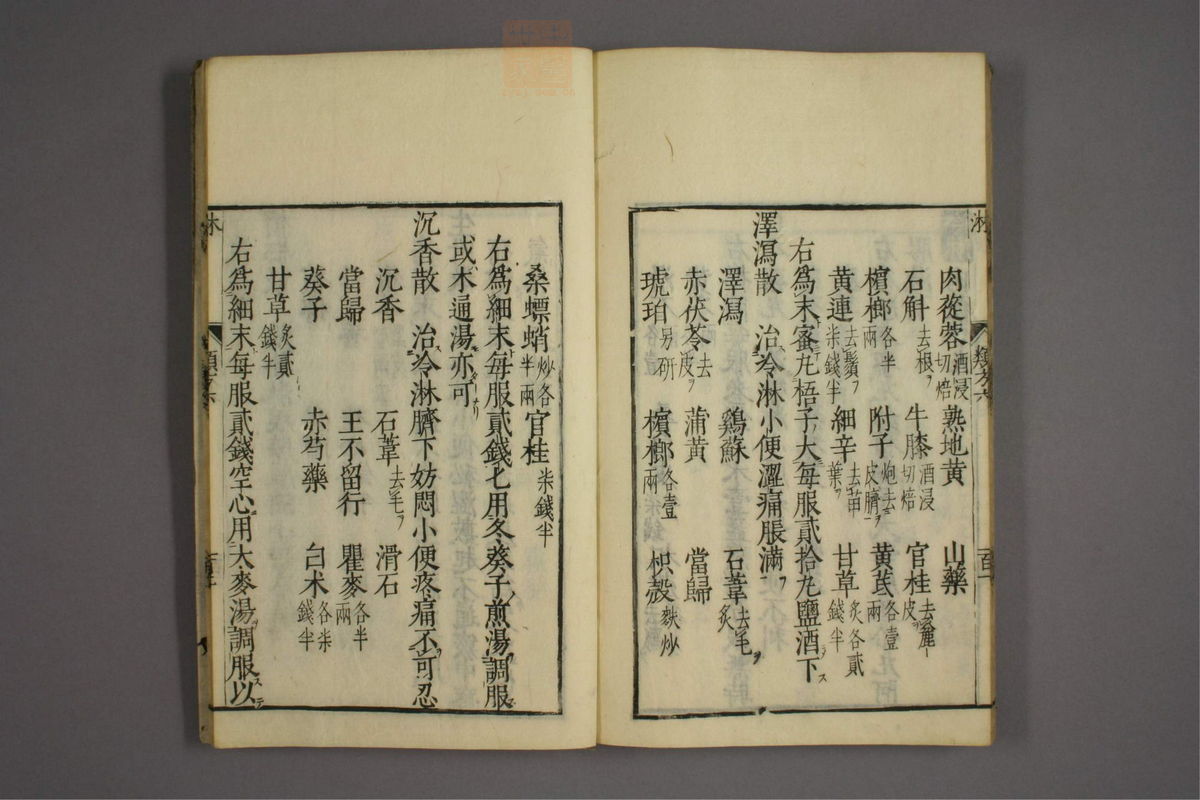 肉蓯蓉酒浸切焙 熟地黄 山藥
石斛去根ヲ 牛膝酒浸切焙 官桂去麄皮
檳榔各半兩 附子炮去皮臍ヲ 黄芪各壹兩
黄連去鬚ヲ柒錢半 細辛去苗葉ヲ 甘草炙各貳錢半
右爲末蜜丸梧子大每服貳拾丸鹽酒下
澤瀉散 治冷淋小便澀痛脹滿
澤瀉 鷄蘇 石葦去毛ヲ炙
赤茯苓去皮ヲ 蒲黄 當歸
琥珀另研 檳榔各壹兩 枳殼麩炒
桑螵蛸炒各半兩 官桂柒錢半
右爲細末每服貳錢匕用冬葵子煎湯調服
或木通湯亦可
沉香散 治冷淋臍下妨悶小便疼痛不可忍
沉香 石葦去毛ヲ 滑石
當歸 王不留行 瞿麥各半兩
葵子 赤芍藥 白术各柒錢半
甘草炙貳錢半
右爲細末每服貳錢空心用大麥湯調服以